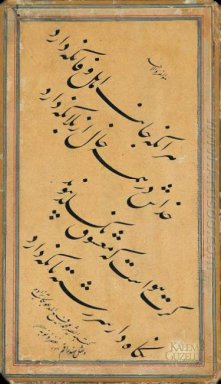 هر آنکه جانب اهل وفا نگه دارد
خداش در همه حال از بلا نگه دارد
گرت هواست که معشوق نگسلد پیوند
نگاه دار سر رشته تا نگه دارد
KALEM
GÜZELİ